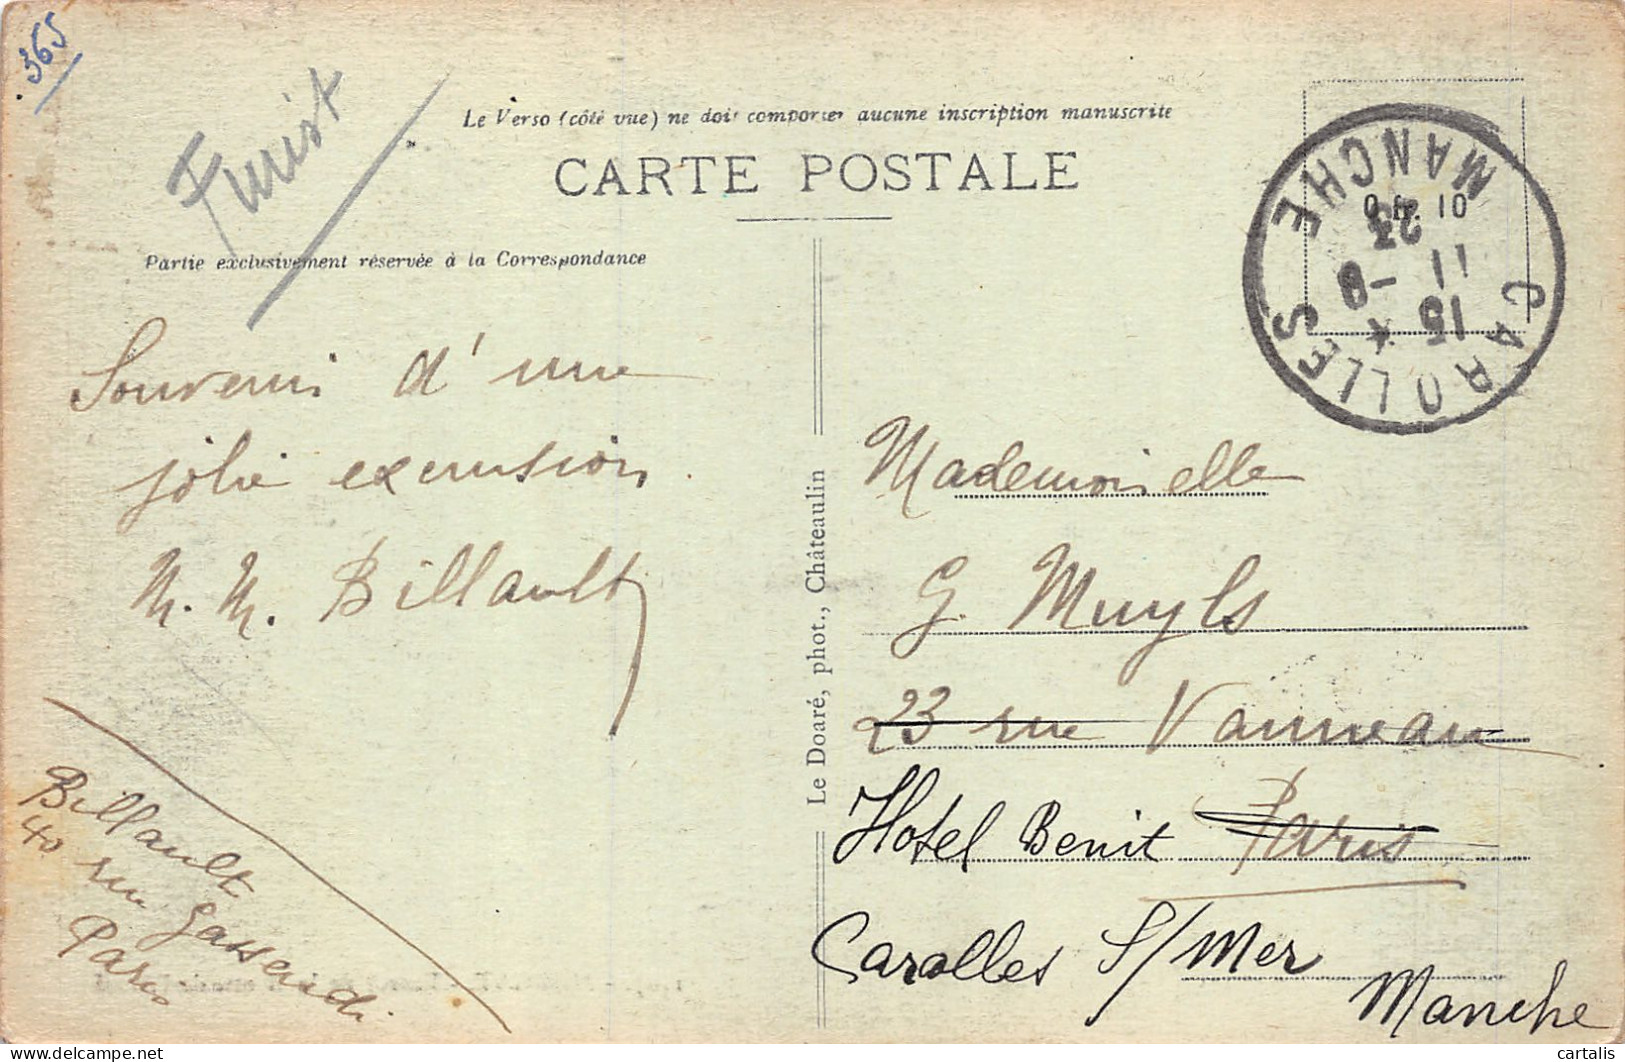 365
Finist
Le Verso (côté vue) ne doit comporter aucune inscription manuscrite
CARTE POSTALE
Partie exclusivement réservée à la Correspondance
CAROLLES
MANCHE
15 *
11 -8
23
0 fr. 10
Souvenir d'une
jolie excursion.
M. M. Billault
Billault
40 rue Gassendi
Paris
Le Doaré, phot., Châteaulin
Mademoiselle
G. Muyls
23 rue Vanneau
Paris
Hotel Benit
Carolles S/Mer
Manche
cartalis